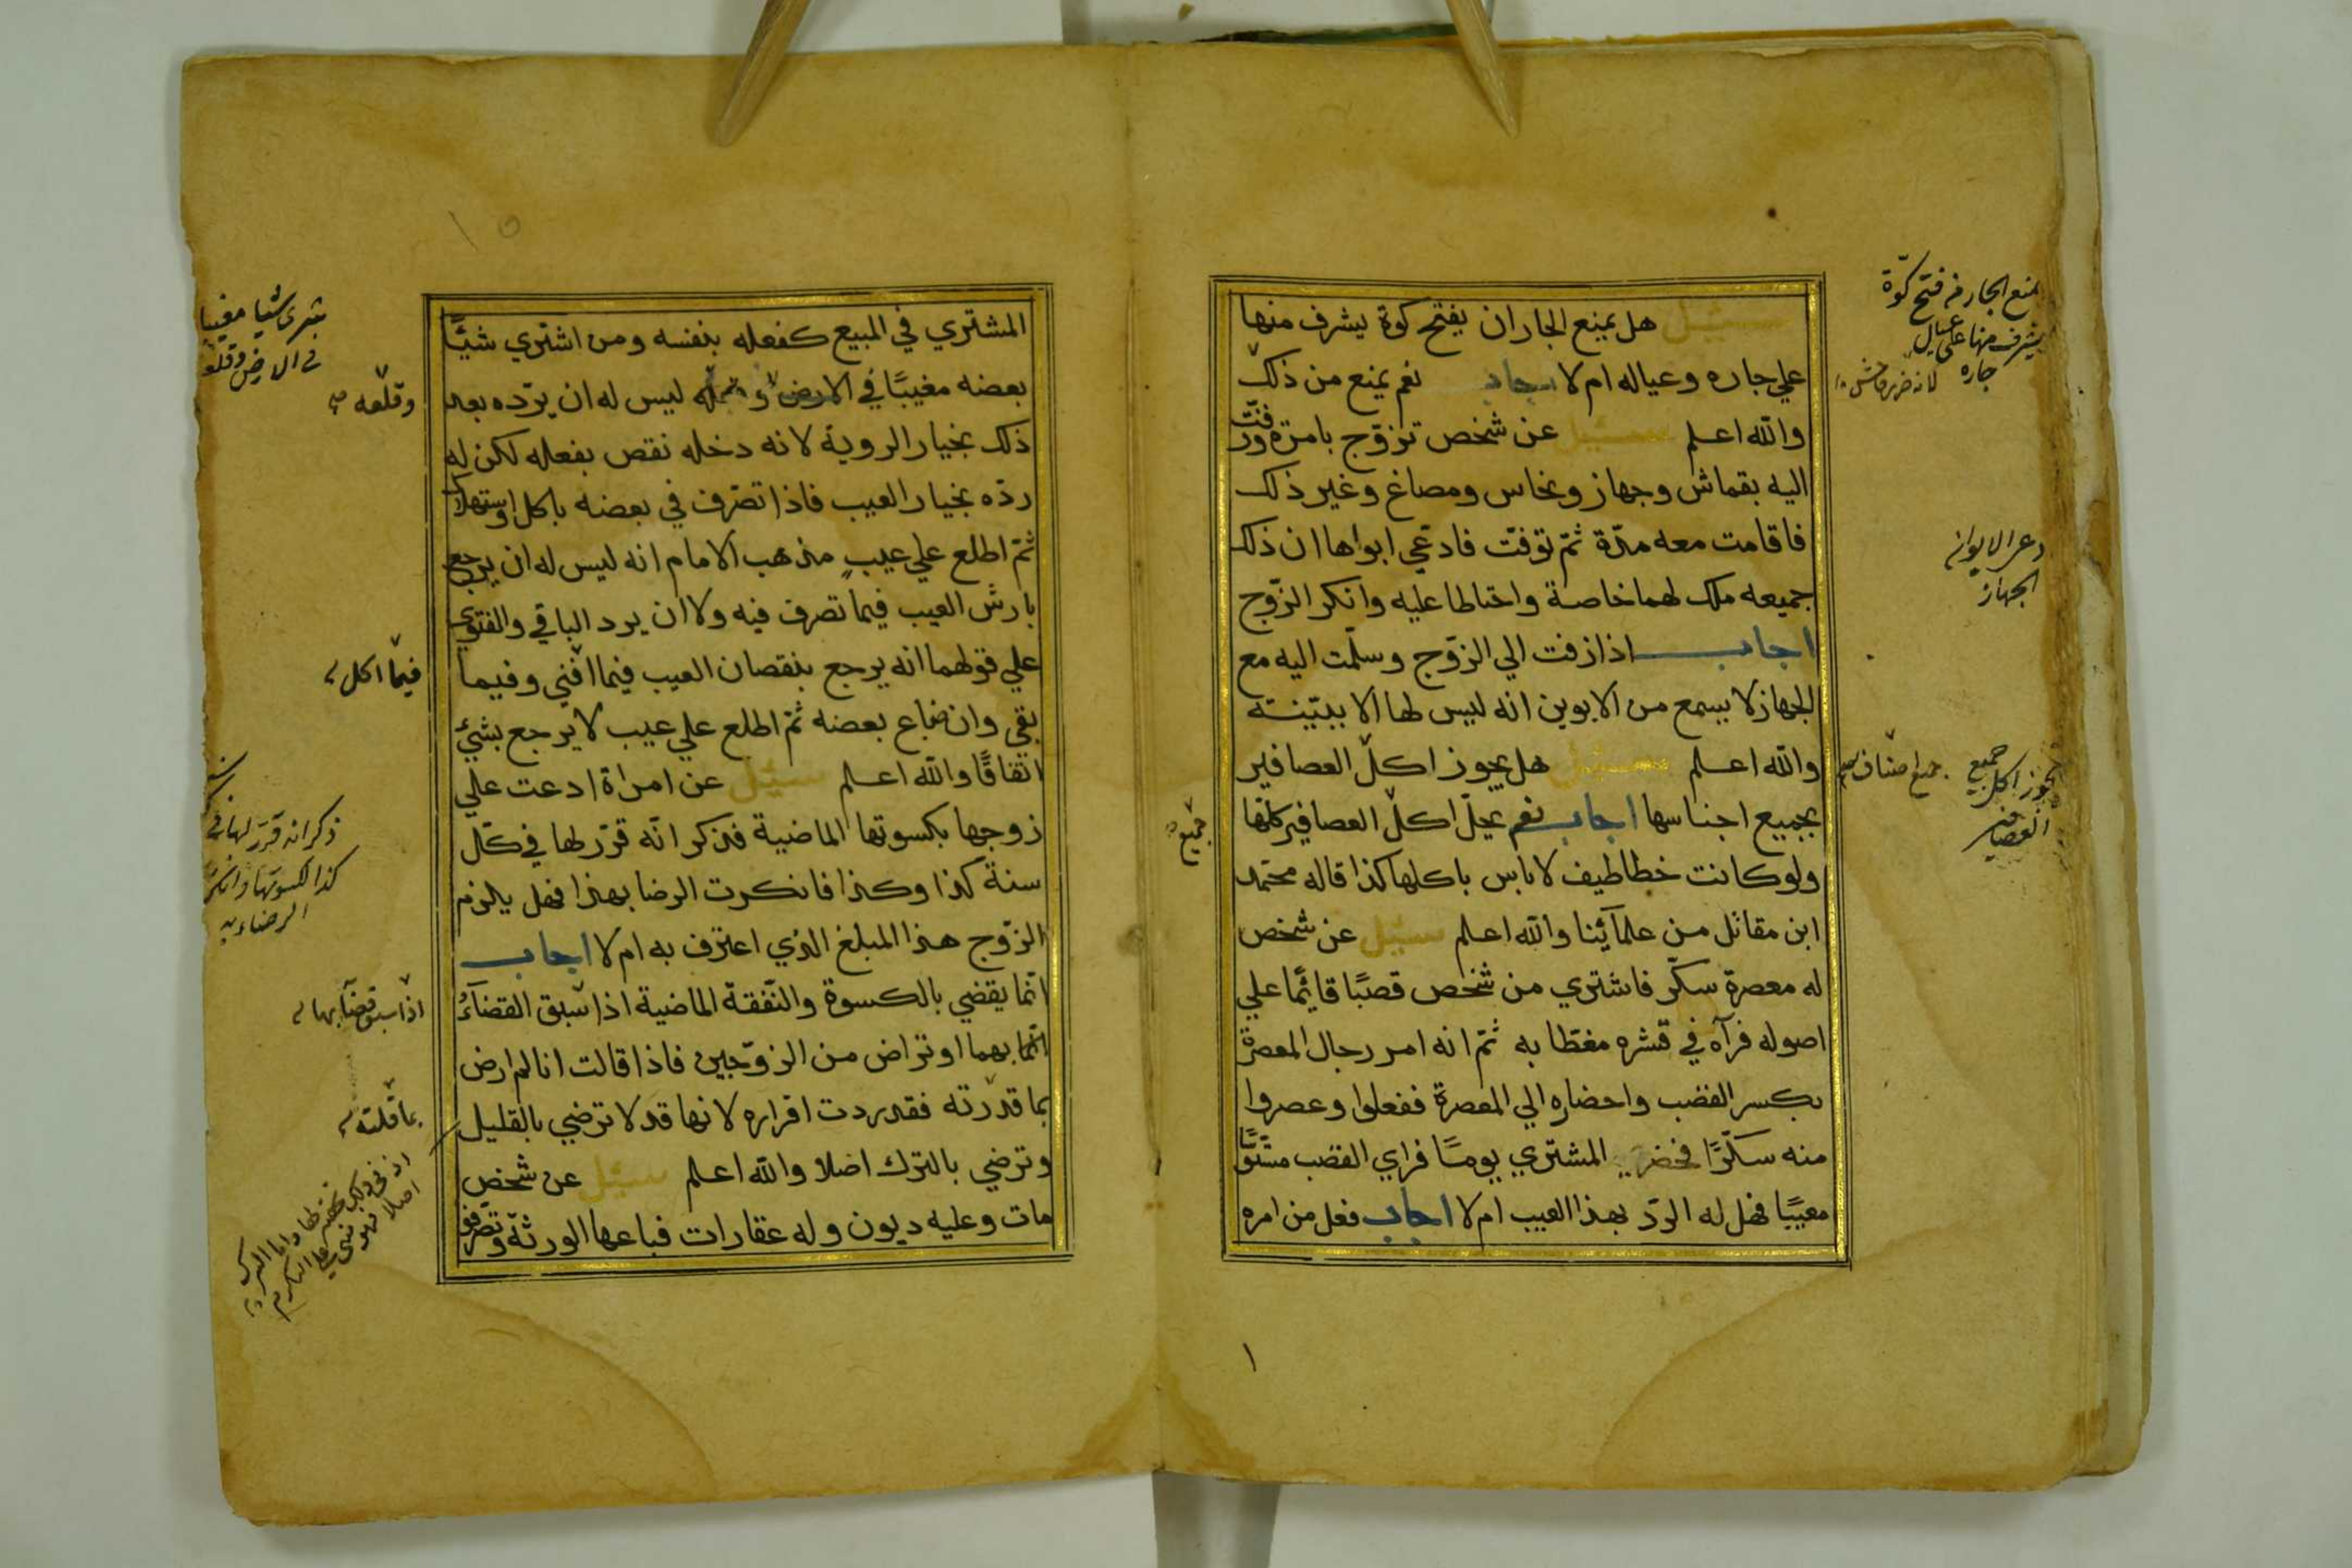 سئيل هل يمنع الجاران يفتح كوة يشرف منها
علي جاره وعياله ام لا اجاب نعم يمنع من ذلك
والله اعلم سئيل عن شخص تزوّج بامرة وزفّت
اليه بقماش وجهاز ونحاس ومصاغ وغير ذلك
فاقامت معه مدّة ثمّ توّفت فادعّي ابواها ان ذلك
جميعه ملك لهما خاصة واحتاطا عليه وانكر الزوّج
اجاب اذا زفت الي الزوّج وسلّمت اليه مع
الجهاز لا يسمع من الابوين انه ليس لها الا ببيّنة
والله اعلم سئيل هل يجوز اكلّ العصافير
بجميع اجناسها اجاب نعم يحلّ اكلّ العصافير كلهّا
ولو كانت خطاطيف لا باس باكلها كذا قاله محمّد
ابن مقاتل من علمآئِنا والله اعلم سئيل عن شخص
له معصرة سكّر فاشتري من شخص قصبًا قائِمًا علي
اصوله فرآه في قشره مغطّا به ثمّ انه امر رجال المعصرة
بكسر القضب واحضاره الي المعصرة ففعلوا وعصروا
منه سكّرًا فحضر المشتري يومًا فراي القضب مسّوّسًا
معيبًا فهل له الردّ بهذا العيب ام لا اجاب فعل من امره
يمنع الجار من فتح كوّة
يشرف منها على عيال
جاره
لانه ضرر فاحش
دعوى الابوان
الجهاز
يجوز اكل جميع
العصافير
جميع اصناف
جميع
١
١٥
المشتري في المبيع كفعله بنفسه ومن اشتري شيًا
بعضه مغيبًا في الارض و ليس له ان يردّه بعد
ذلك بخيار الروية لانه دخله نقص بفعله لكن له
ردّه بخيار العيب فاذا تصّرف في بعضه باكل او استهلاك
ثمّ اطلع علي عيبٍ مذهب الامام انه ليس له ان يرجع
بارش العيب فيما تصرف فيه ولا ان يرد الباقي والفتوي
علي قولهما انه يرجع بنقصان العيب فيما افني وفيما
بقي وان ضاع بعضه ثمّ اطلع علي عيب لا يرجع بشيٍ
اتفاقًا والله اعلم سئيل عن امراة ادعت علي
زوجها بكسوتها الماضية فذكر انّه قرّر لها في كلّ
سنة كذا وكذا فانكرت الرضا بهذا فهل يلزم
الزوّج هذا المبلغ الذي اعترف به ام لا اجاب
انّما يقضي بالكسوة والنّفقة الماضية اذا سبق القضآءُ
بهما او تراض من الزوّجين فاذا قالت انا لم ارض
بما قدرته فقد ردت اقراره لانها قد لا ترضي بالقليل
وترضي بالترك اضلا والله اعلم سئيل عن شخص
مات وعليه ديون وله عقارات فباعها الورثة وتصّرفو
يشترى شيا مغيبا
فى الارض وقلعه
وقلّعه
فيّما اكل
ذكر انه قرّر لها فى
كذا لكسوتها وانكرت
الرضاء به
اذا سبق قضآ بهما
بما قلته